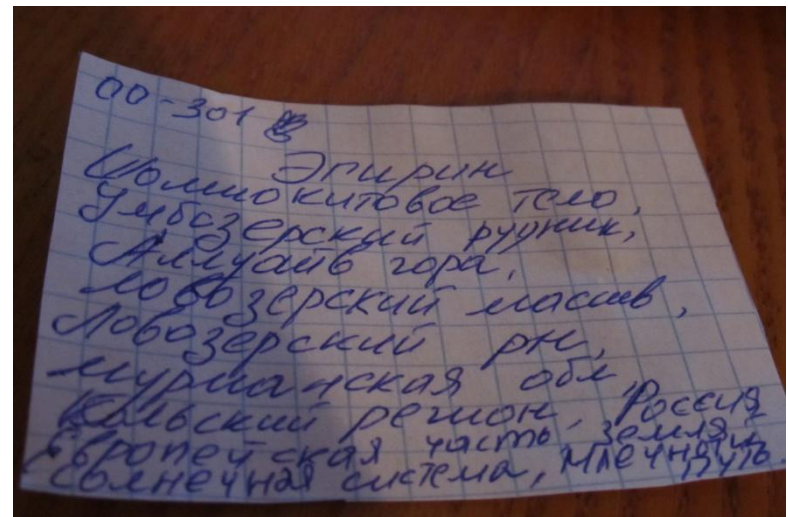 ОО-301
Эпирин
Шомиокитовое тело,
Умбозерский рудник,
Аллуайв гора,
Ловозерский массив,
Ловозерский рн,
Мурманская обл,
Кольский регион, Россия,
Европейская часть, Земля,
Солнечная система, Млечный путь.